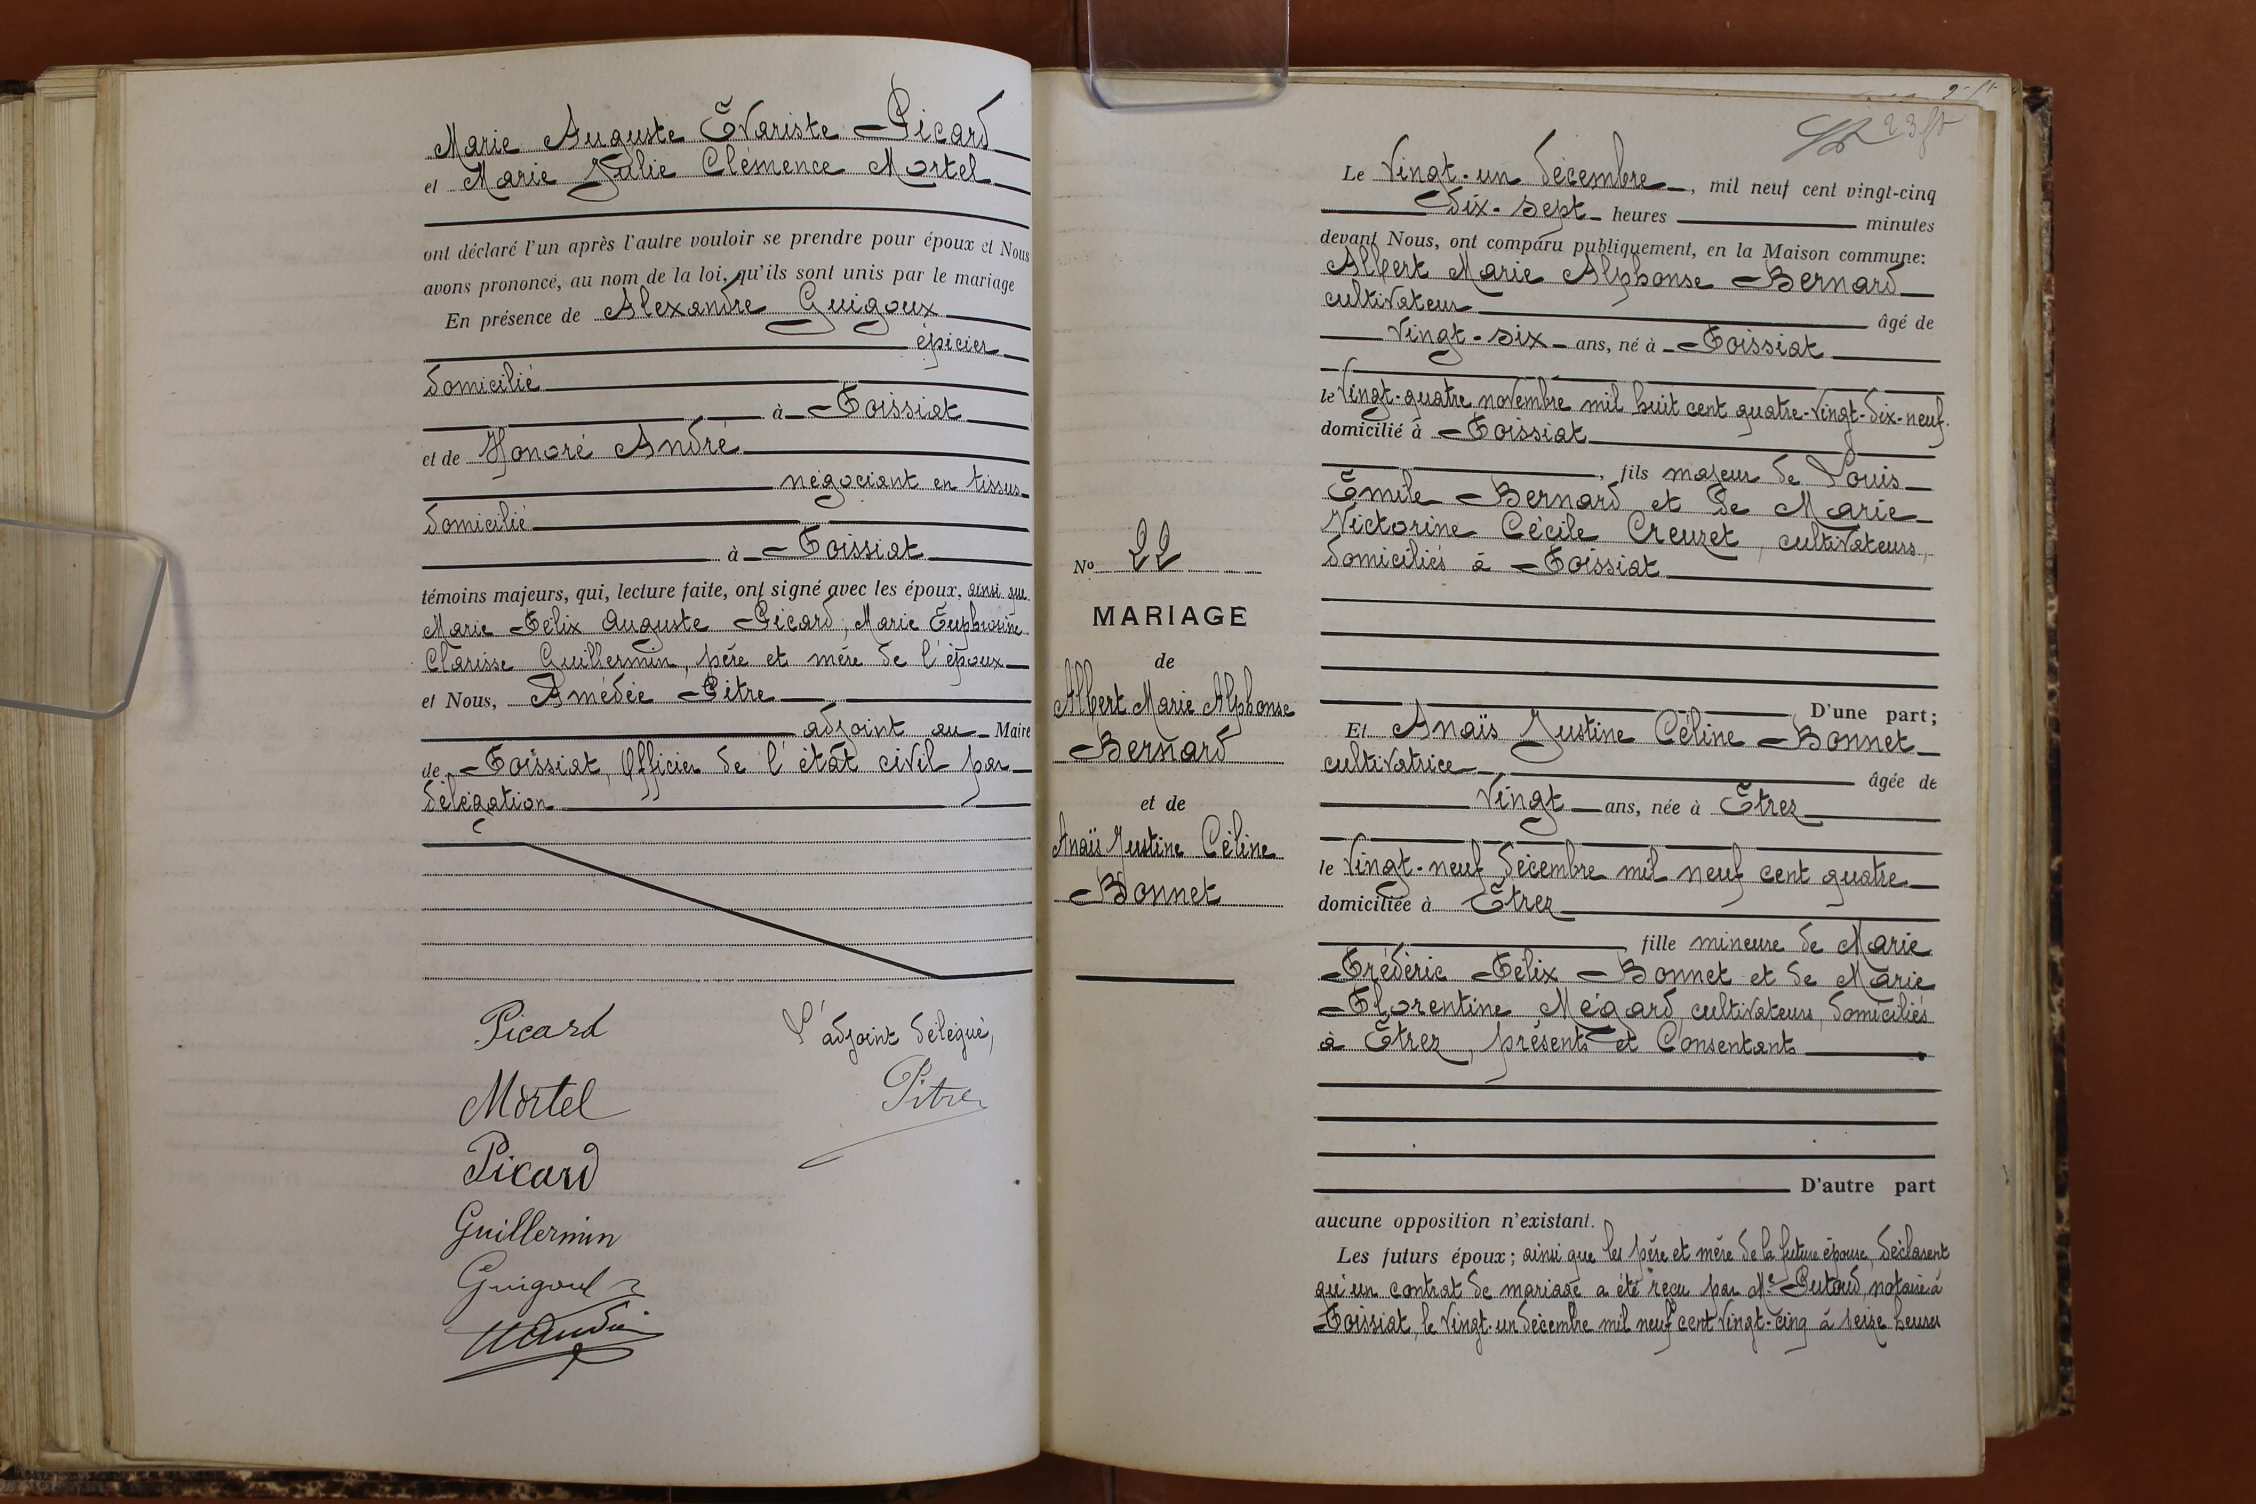 Marie Auguste Évariste Picard
et Marie Julie Clémence Mortel
ont déclaré l'un après l'autre vouloir se prendre pour époux et Nous
avons prononcé, au nom de la loi, qu'ils sont unis par le mariage
En présence de Alexandre Guigoux
épicier
domicilié
à Foissiat
et de Honoré André
négociant en tissus
domicilié
à Foissiat
témoins majeurs, qui, lecture faite, ont signé avec les époux, ainsi que
Marie Félix Auguste Picard, Marie Euphrosine
Clarisse Guillermin, père et mère de l'époux
et Nous, Amédée Pitre
adjoint au Maire
de Foissiat, Officier de l'état civil par
délégation
Picard
L'adjoint délégué,
Pitre
Mortel
Picard
Guillermin
Guigoux
23
Le vingt-un décembre, mil neuf cent vingt-cinq
dix-sept heures minutes
devant Nous, ont comparu publiquement, en la Maison commune:
Albert Marie Alphonse Bernard
cultivateur âgé de
vingt-six ans, né à Foissiat
le vingt-quatre novembre mil huit cent quatre-vingt-dix-neuf.
domicilié à Foissiat
, fils majeur de Louis
Émile Bernard et de Marie
Victorine Cécile Creuzet, cultivateurs,
domiciliés à Foissiat
D'une part;
Et Anaïs Justine Céline Bonnet
cultivatrice âgée de
vingt ans, née à Étrez
le vingt-neuf décembre mil neuf cent quatre
domiciliée à Étrez
, fille mineure de Marie
Frédéric Félix Bonnet et de Marie
Florentine Mégard, cultivateurs, domiciliés
à Étrez, présents et consentants
D'autre part
aucune opposition n'existant.
Les futurs époux; ainsi que les père et mère de la future épouse, déclarent
qu'un contrat de mariage a été reçu par Me Putoud, notaire à
Foissiat, le vingt-un décembre mil neuf cent vingt-cinq à seize heures
No 22
MARIAGE
de
Albert Marie Alphonse
Bernard
et de
Anaïs Justine Céline
Bonnet